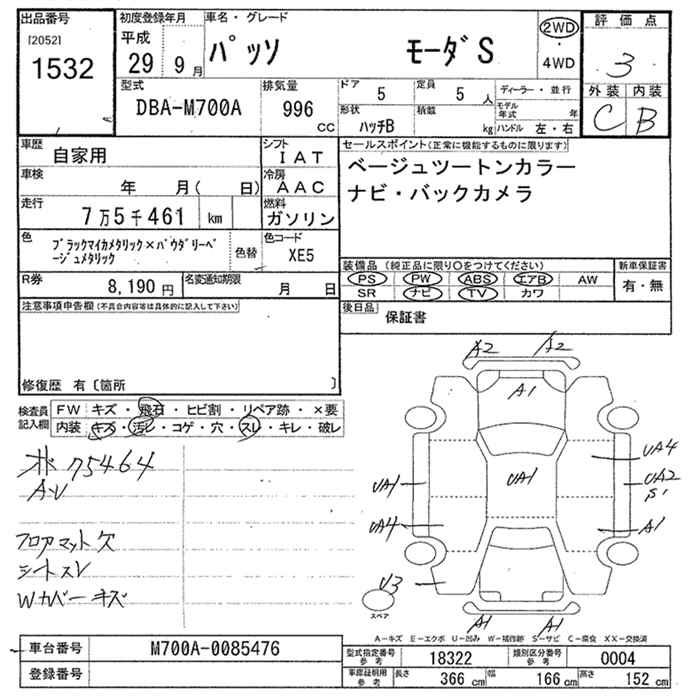 出品番号
[2052]
1532
初度登録年月
平成
29 9 月
車名・グレード
パッソ モーダS
2WD
・
4WD
評価点
3
外装 内装
C B
型式
DBA-M700A
排気量
996 CC
ドア 5
定員 5 人
形状 ハッチB
積載 kg
ディーラー・並行
モデル年式 年
ハンドル 左・右
車歴 自家用
シフト IAT
車検 年 月( 日)
冷房 AAC
走行 7万5千461 km
燃料 ガソリン
色 ブラックマイカメタリック×パウダリーベージュメタリック
色替
色コード XE5
R券 8,190円
名変通知期限 月 日
セールスポイント(正常に機能するものに限ります)
ベージュツートンカラー
ナビ・バックカメラ
装備品 (純正品に限り○をつけてください)
PS PW ABS エアB AW
SR ナビ TV カワ
新車保証書
有・無
後日品 保証書
注意事項申告欄(不具合内容等は具体的に記入して下さい)
修復歴 有〔箇所 〕
検査員記入欄
FW キズ・飛石・ヒビ割・リペア跡・×要
内装 キズ・汚レ・コゲ・穴・スレ・キレ・破レ
75464
A・V
フロアマット欠
シートスレ
Wカバーキズ
A2 A2
A1
UA4
UA1 UA1 UA2
S1
UA4 A1
U3
スペア
A1 A1
A-キズ E-エクボ U-凹み W-補修跡 S-サビ C-腐食 XX-交換済
車台番号 M700A-0085476
登録番号
型式指定番号 参考 18322
類別区分番号 参考 0004
車庫証明用 参考 長さ 366 cm 幅 166 cm 高さ 152 cm